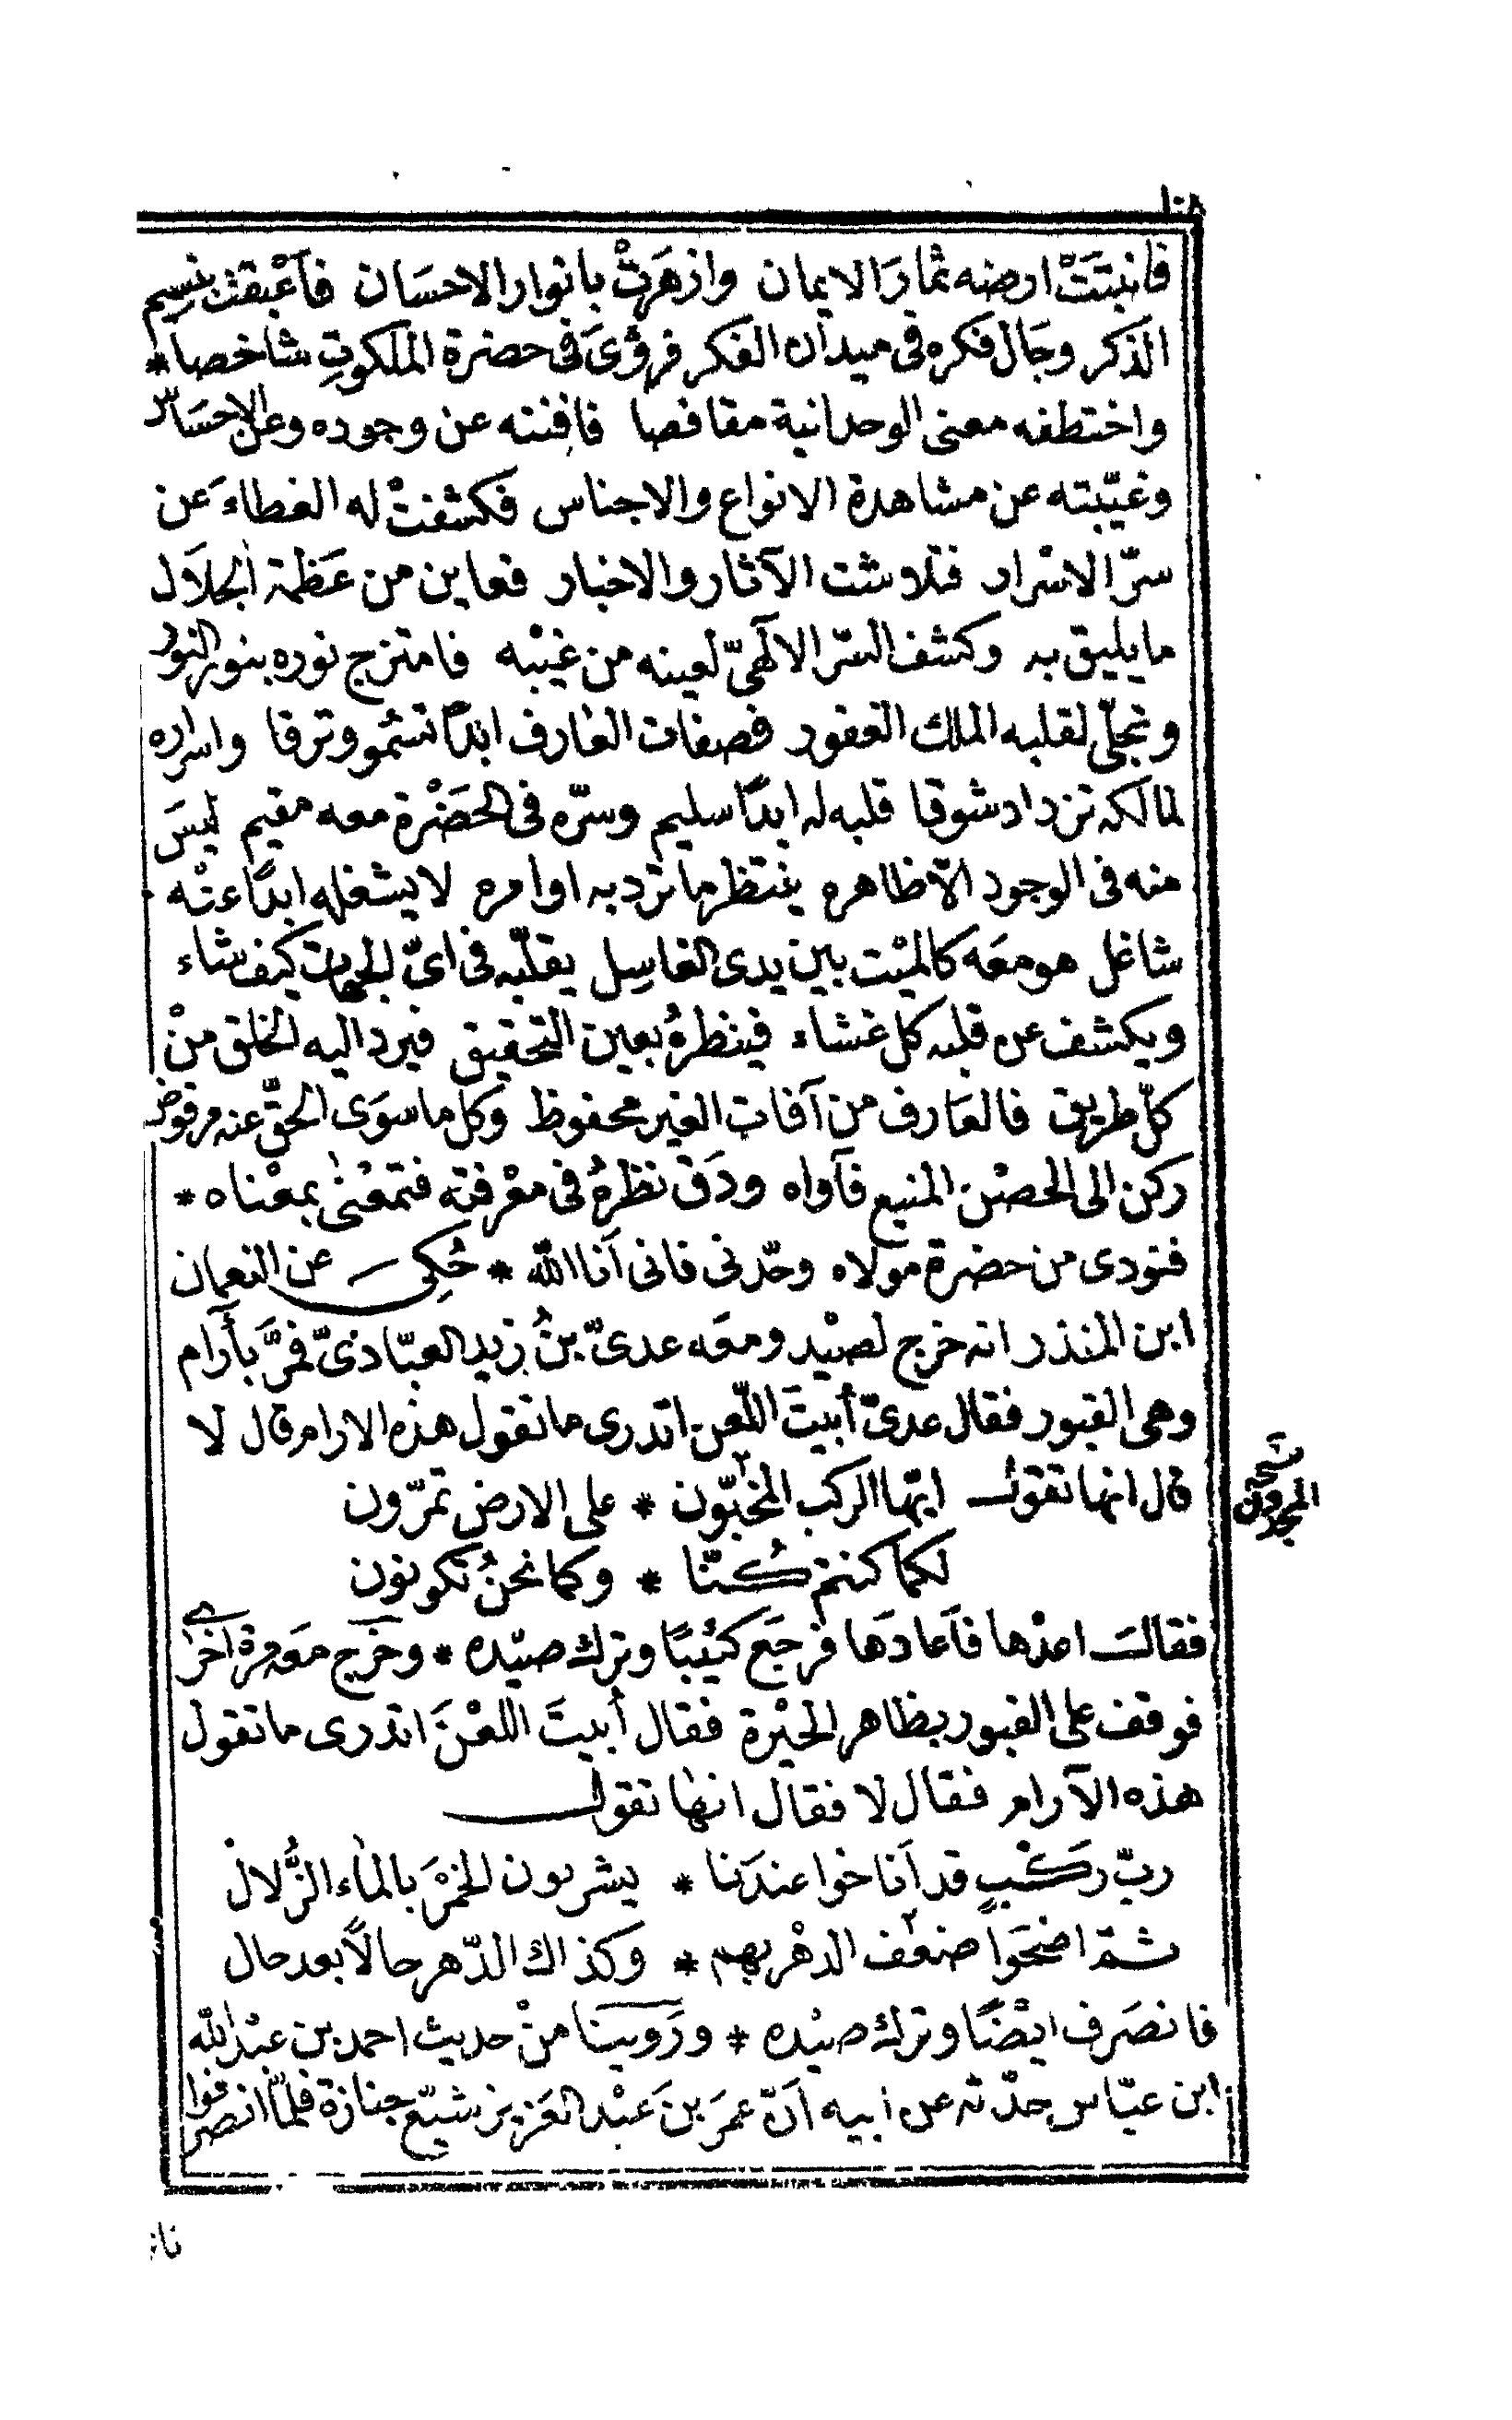 ١٠٨
فانبتَتْ ارضه ثمارَ الايمان وازهَرتْ بانوار الاحسَان فاَعْبقت بنسيم
الذكر وجَال فكره فى ميدان الفكر فرؤىَ فى حضرة الملكوتِ شاخصا *
واختطفه معنى الوحدانية مقافصا فافنته عن وجوده وعن الاحسَاس
وغيّبته عن مشاهدة الانواع والاجناس فكشفتْ له الغطاءَ عن
سرّ الاسْرار فتلاشت الآثار والاخبار فعاين من عَظمة الجلاَل
ما يليق به وكشف السّر الالٓهىّ لعينه من غيْبه فامتزج نوره بنور النور
وتجلّى لقلبه الملك الغفور فصفات العارف ابدًا تسْمُو وترقا واسراره
لمالكه تزداد شوقا قلبه له ابدًا سليم وسرّه فى الحَضْرة معه مقيم ليسَ
منه فى الوجود الّا ظاهره ينتظر ما ترد به اوامره لا يشغله ابدًا عنْه
شاغل هو معَه كالميْت بين يدى الغاسِل يقلّبه فى اىّ الجهات كيف شاء
ويكشف عن قلبه كل غشاء فينظرهُ بعين التحقيق فيرد اليه الخلق منْ
كلّ طريق فالعَارف من آفات الغير محفوظ وكل ما سوَى الحقّ عنه مرفوض
ركن الى الحصْن المنيع فآواه ودَق نظرهُ فى معْرفته فتمعْنىٰ بمعْناه *
فنودى من حضرة مولاه وحّدنى فانى اَنا الله * حُكِى عن النعمان
ابن المنذر انه خرج لصيْد ومعَه عدىّ بنُ زيد العبّادىّ فمَرَّ بأرام
وهى القبور فقال عدىّ أبيتَ اللّعن اتدرى ما تقول هذه الارام قال لا
قال انها تقول ايّها الركب المخبّون * على الارض تمرّون
نسخة المجدون
لكما كنتم كُنّا * وكما نحنُ تكونون
فقالت اعدْها فاَعادَها فرجَع كئيبًا وترك صيْده * وخرج معَه مرة اخرى
فوقف على القبور بظاهر الحيْرة فقال أبيتَ اللعْنَ اتدرى ما تقول
هذه الآرام فقال لا فقال انها تقول
ربّ ركْبٍ قد اَناخوا عندَنا * يشربون الخمْرَ بالماء الزُّلالْ
ثمّ اضحَوا ضعَف الدهْر بهم * وكذاك الدّهر حالاً بعد حال
فانصَرف ايْضًا وترك صيْده * ورَوينا منْ حديث احمد بن عبْدالله
ابن عبّاس حدّثه عن ابيه اَنّ عمَر بنَ عبْد العَزيز شيّع جنازة فلمّا انصرفوا